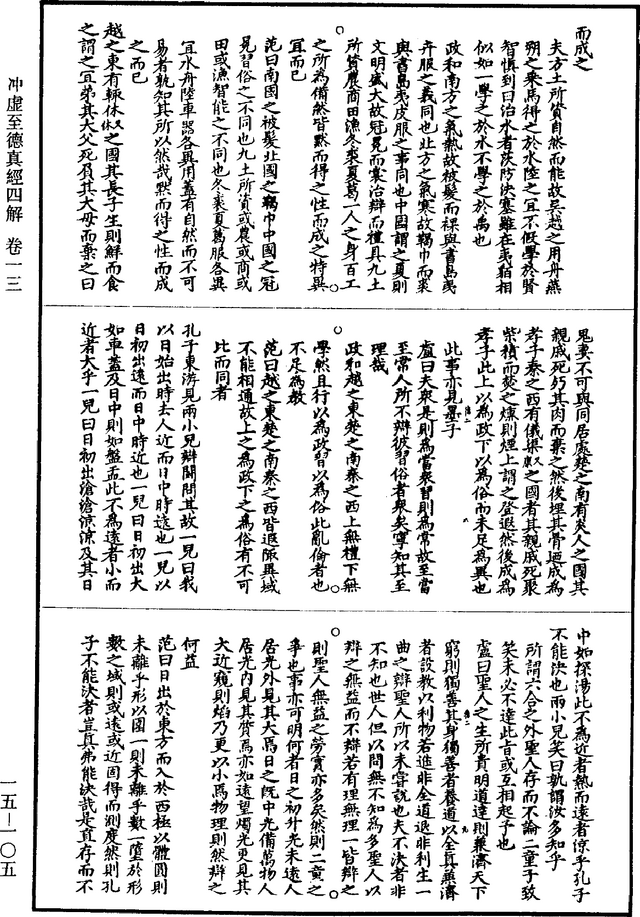 冲虛至德真經四解 卷一三
一五—一〇五
而成之
夫方土所資自然而能故吳越之用舟燕
朔之乘馬得之於水陸之宜不假學於賢
智慎到曰治水者茨防決塞雖在夷貊相
似如一學之於水不學之於禹也
政和南方之氣熱故被髮而裸與書島夷
卉服之義同也北方之氣寒故鞨巾而裘
與書島夷皮服之事同也中國謂之夏則
文明盛大故冠冕而裳治辯而禮具九土
所資農商田漁冬裘夏葛一人之身百工
之所為備然皆默而得之性而成之特異
宜而已
范曰南國之被髮北國之鞨巾中國之冠
冕習俗之不同也九土所資或農或商或
田或漁智能之不同也冬裘夏葛服各異
宜水舟陸車器各異用蓋有自然而不可
易者孰知其所以然哉默而得之性而成
之而已
越之東有輒休之國其長子生則鮮而食
之謂之宜弟其大父死負其大母而棄之曰
鬼妻不可與同居處楚之南有炎人之國其
親戚死㱙其肉而棄之然後埋其骨迺成為
孝子秦之西有儀渠之國者其親戚死聚
祡積而焚之燻則煙上謂之登遐然後成為
孝子此上以為政下以為俗而未足為異也
此事亦見墨子
盧曰夫眾是則為當眾習則為常故至當
至常人所不辨彼習俗者眾矣寧知其至
理哉
政和越之東楚之南秦之西上無禮下無
學然且行以為政習以為俗此亂倫者也
不足為教
范曰越之東楚之南秦之西皆遐陬異域
不能相通故上之為政下之為俗有不可
比而同者
孔子東游見兩小兒辯鬪問其故一兒曰我
以日始出時去人近而日中時遠也一兒以
日初出遠而日中時近也一兒曰日初出大
如車蓋及日中則如盤盂此不為遠者小而
近者大乎一兒曰日初出滄滄涼涼及其日
中如探湯此不為近者熱而遠者涼乎孔子
不能決也兩小兒笑曰孰謂汝多知乎
所謂六合之外聖人存而不論二童子致
笑未必不達此旨或互相起予也
盧曰聖人之生所貴明道達則兼濟天下
窮則獨善其身獨善者養道以全真兼濟
者設教以利物若進非全道退非利生一
曲之辯聖人所以未嘗說也夫不決者非
不知也世人但以問無不知為多聖人以
辯之無益而不辯若有理無理一皆辯之
則聖人無益之勞實亦多矣然則二童之
爭也事亦可明何者日之初升光未遠人
居光外見其大焉日之既中光備萬物人
居光內見其質焉亦如遠望燭光更見其
大近窺則焰乃更以小焉物理則然辯之
何益
范曰日出於東方而入於西極以體圓則
未離乎形以圍一則未離乎數一墮於形
數之域則或遠或近固得而測度然則孔
子不能決者豈真弗能決哉是直存而不